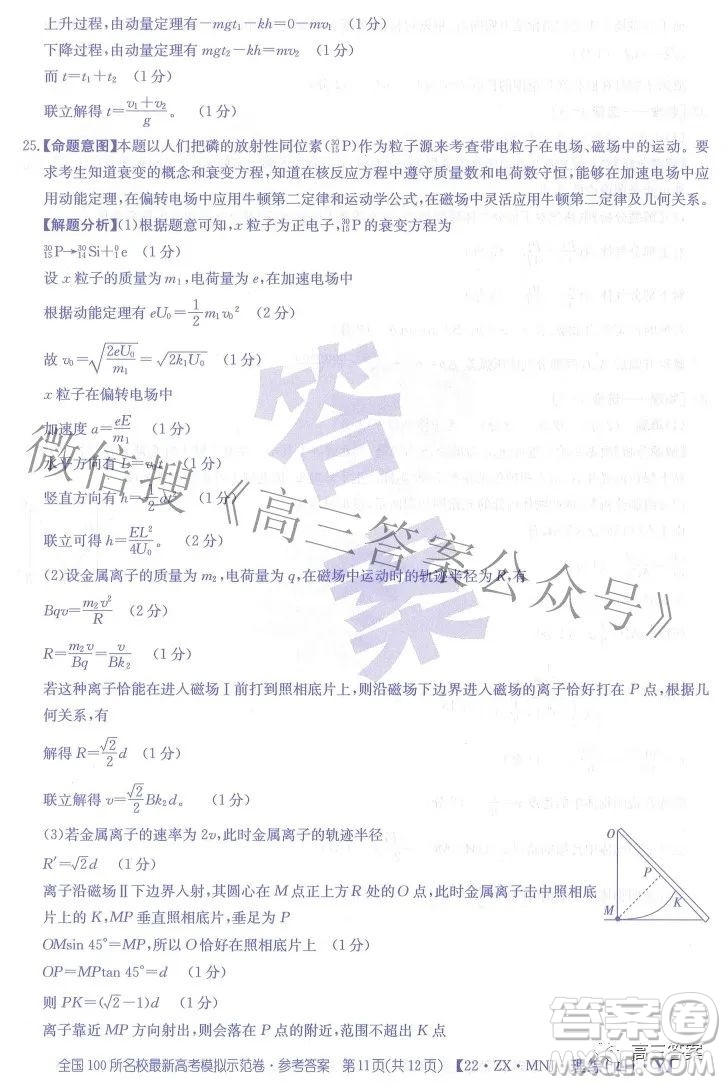 上升过程,由动量定理有−mgt₁−kh=0−mv₁ (1分)
下降过程,由动量定理有mgt₂−kh=mv₂ (1分)
而t=t₁+t₂ (1分)
联立解得t=\frac{v₁+v₂}{g}。 (1分)
25.【命题意图】本题以人们把磷的放射性同位素(³⁰₁₅P)作为粒子源来考查带电粒子在电场、磁场中的运动。要
求考生知道衰变的概念和衰变方程,知道在核反应方程中遵守质量数和电荷数守恒,能够在加速电场中应
用动能定理,在偏转电场中应用牛顿第二定律和运动学公式,在磁场中灵活应用牛顿第二定律及几何关系。
【解题分析】(1)根据题意可知,x粒子为正电子,³⁰₁₅P的衰变方程为
³⁰₁₅P→³⁰₁₄Si+⁰₁e (1分)
设x粒子的质量为m₁,电荷量为e,在加速电场中
根据动能定理有eU₀=\frac{1}{2}m₁v₀² (2分)
故v₀=\sqrt{\frac{2eU₀}{m₁}}=\sqrt{2k₁U₀} (1分)
x粒子在偏转电场中
加速度a=\frac{eE}{m₁} (1分)
水平方向有L=v₀t (1分)
竖直方向有h=\frac{1}{2}at² (1分)
联立可得h=\frac{EL²}{4U₀}。 (2分)
(2)设金属离子的质量为m₂,电荷量为q,在磁场中运动时的轨迹半径为R,有
Bqv=\frac{m₂v²}{R} (2分)
R=\frac{m₂v}{Bq}=\frac{v}{Bk₂} (1分)
若这种离子恰能在进入磁场Ⅰ前打到照相底片上,则沿磁场下边界进入磁场的离子恰好打在P点,根据几
何关系,有
解得R=\frac{\sqrt{2}}{2}d (1分)
联立解得v=\frac{\sqrt{2}}{2}Bk₂d。 (1分)
(3)若金属离子的速率为2v,此时金属离子的轨迹半径
R′=\sqrt{2}d (1分)
离子沿磁场Ⅱ下边界入射,其圆心在M点正上方R处的O点,此时金属离子击中照相底
片上的K,MP垂直照相底片,垂足为P
OMsin 45°=MP,所以O恰好在照相底片上 (1分)
OP=MPtan 45°=d (1分)
则PK=(\sqrt{2}−1)d (1分)
离子靠近MP方向入射,离子恰好打在P点
O
P
K
M
答案
微信搜《高三答案公众号》
全国100所名校最新高考模拟示范卷·参考答案 第11页(共12页) 【22·ZX·MN
高三答案
答案